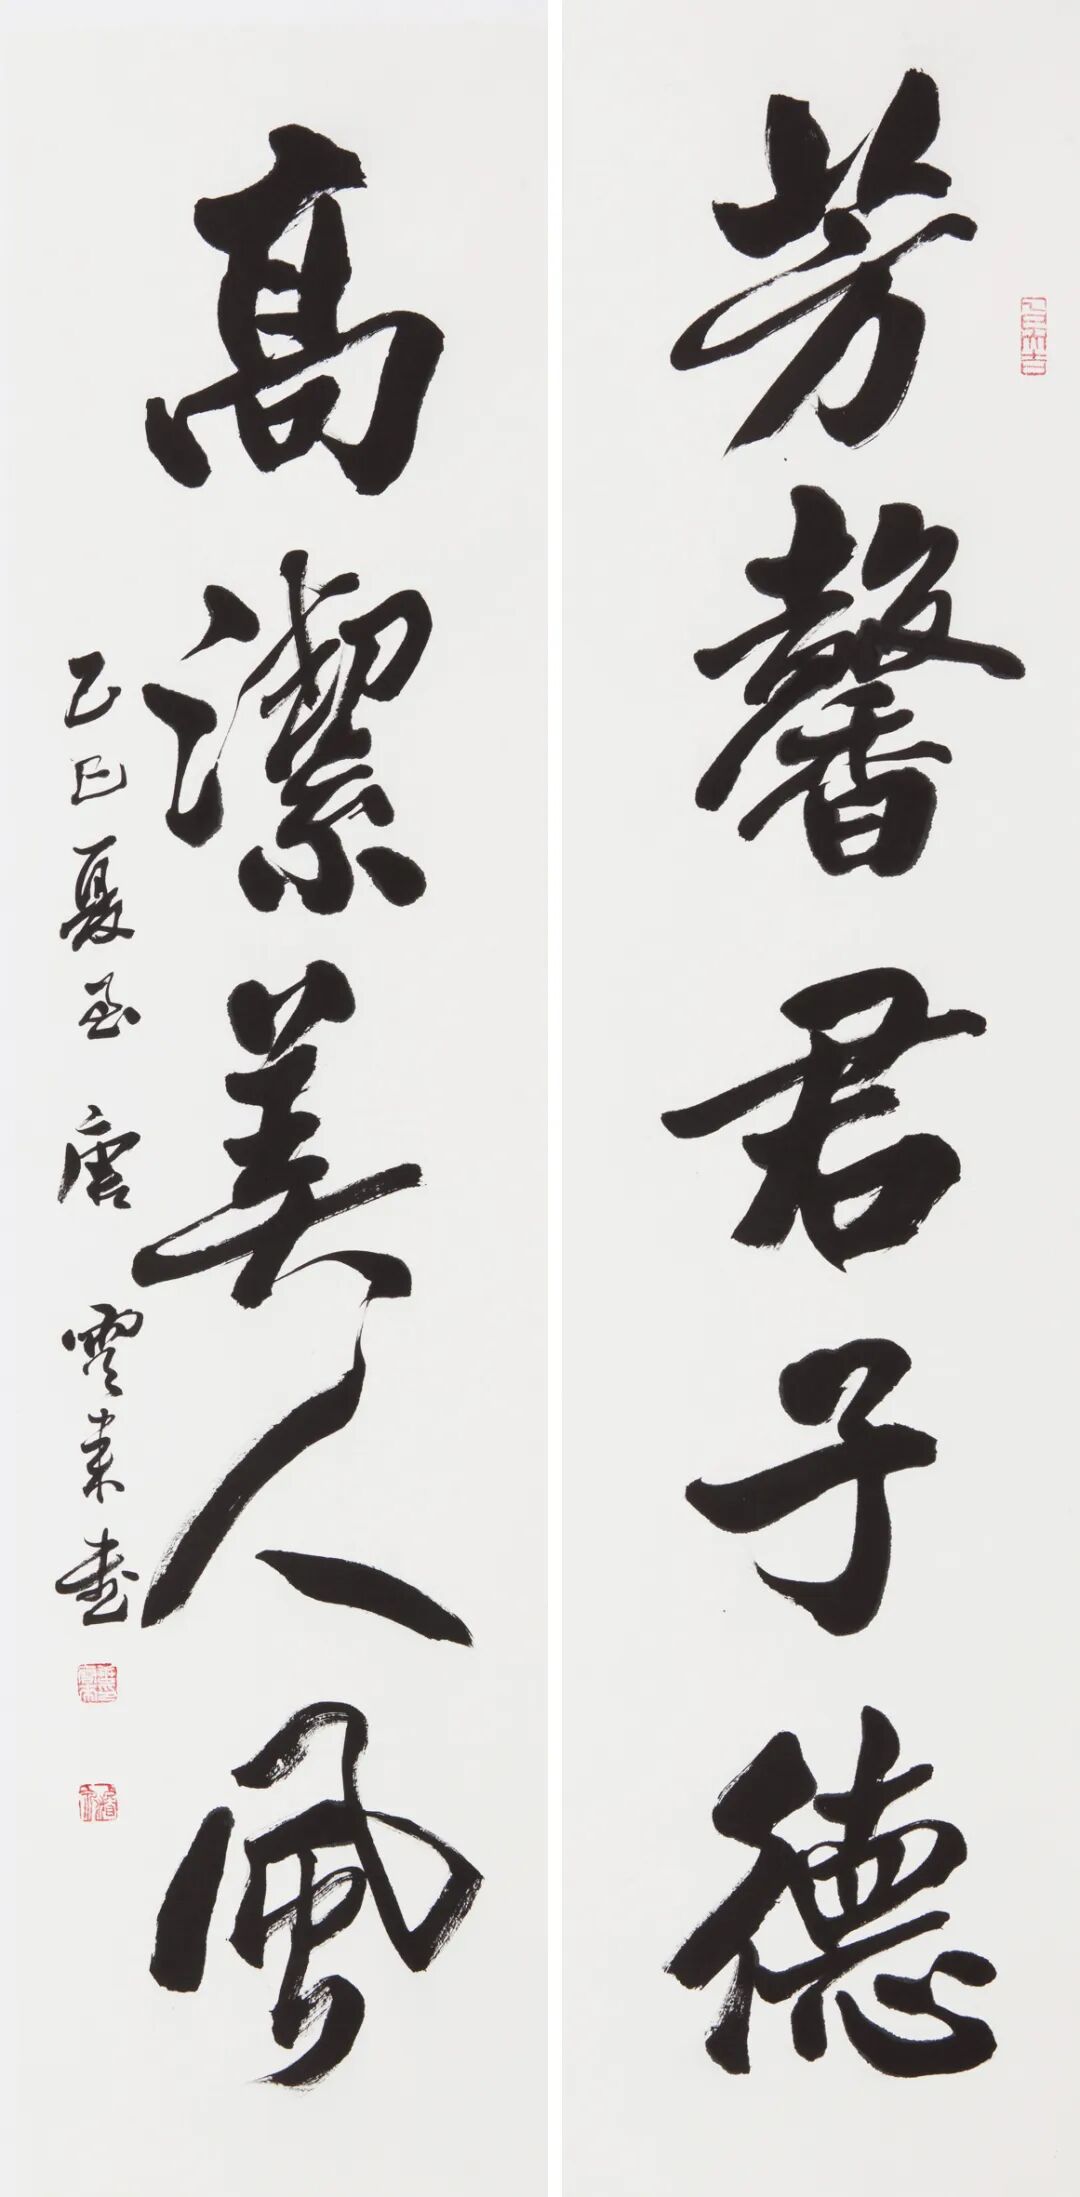 芳馨君子德
高潔美人風
乙巳夏至 唐雲來書